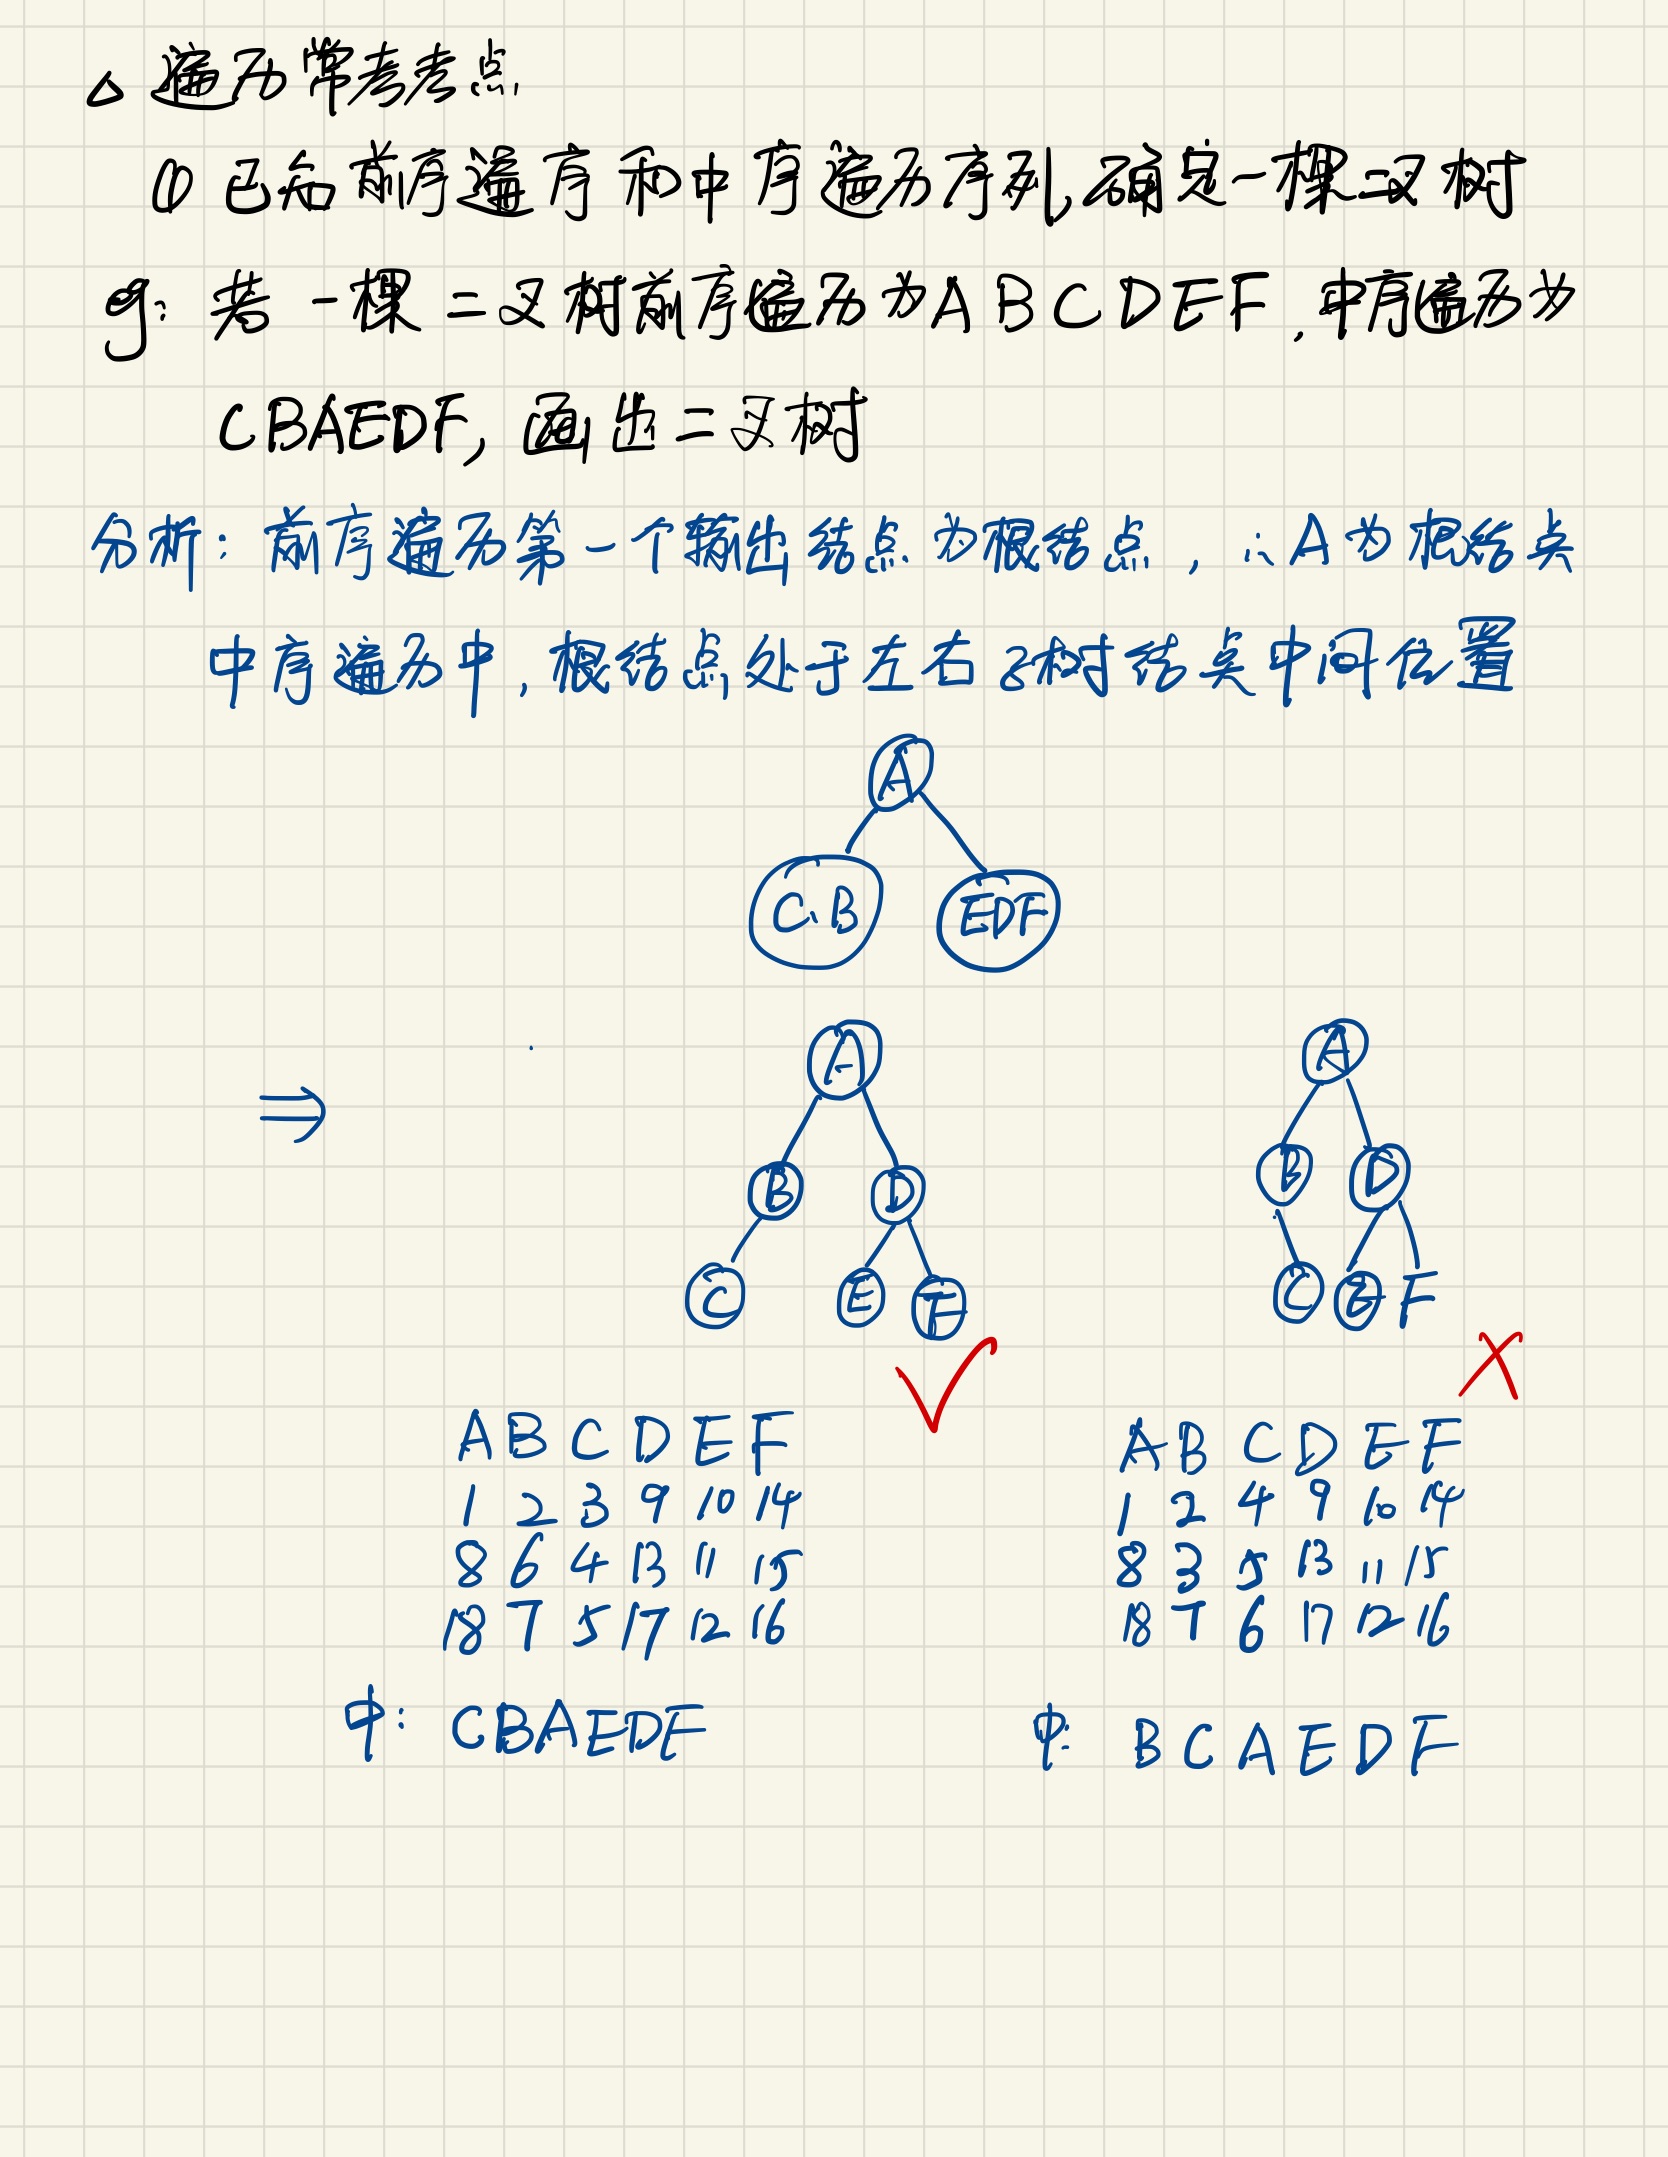 △ 遍历常考考点
① 已知前序遍序和中序遍历序列,确定一棵二叉树
eg: 若一棵二叉树前序遍历为ABCDEF,中序遍历为
CBAEDF,画出二叉树
分析:前序遍历第一个输出结点为根结点,∴A为根结点
中序遍历中,根结点处于左右子树结点中间位置
A
C、B EDF
⇒
A
B D
C E F
A
B D
C E F
A B C D E F
1 2 3 9 10 14
8 6 4 13 11 15
18 7 5 17 12 16
中: CBAEDF
A B C D E F
1 2 4 9 10 14
8 3 5 13 11 15
18 7 6 17 12 16
中: B C A E D F